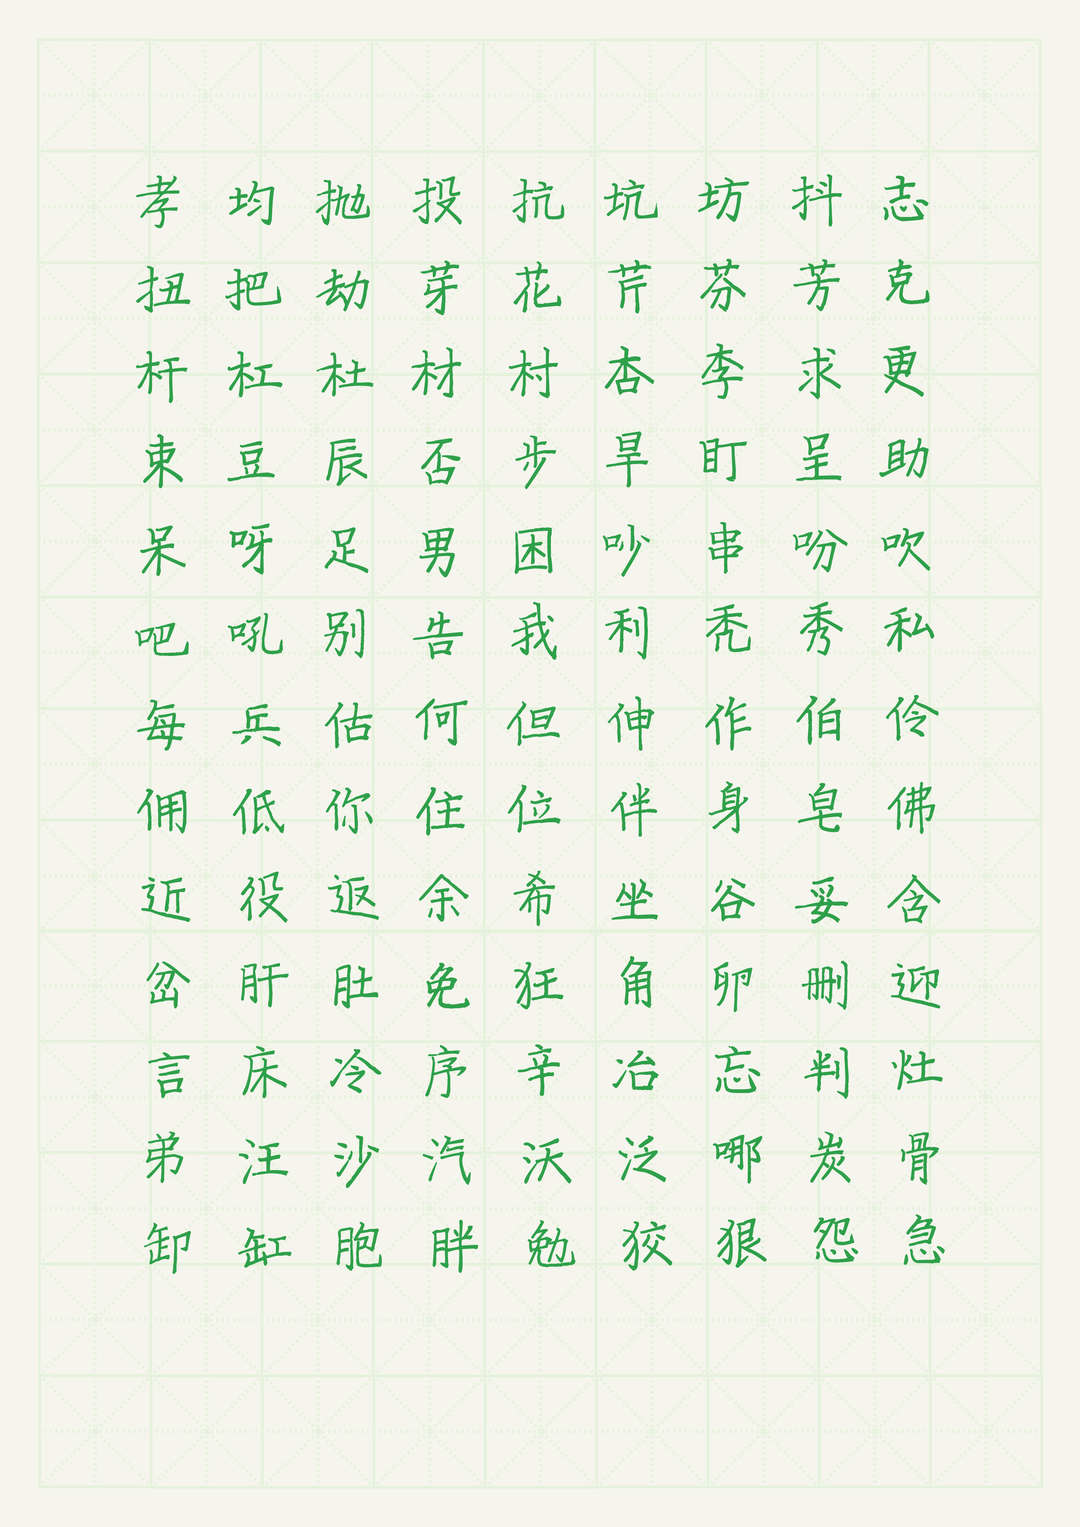 孝均抛投抗坑坊抖志
扭把劫芽花芹芬芳克
杆杠杜材村杏李求更
束豆辰否步旱盯呈助
呆呀足男困吵串吩吹
吧吼别告我利秃秀私
每兵估何但伸作伯伶
佣低你住位伴身皂佛
近役返余希坐谷妥含
岔肝肚免狂角卵删迎
言床冷序辛冶忘判灶
弟汪沙汽沃泛哪炭骨
卸缸胞胖勉狡狠怨急